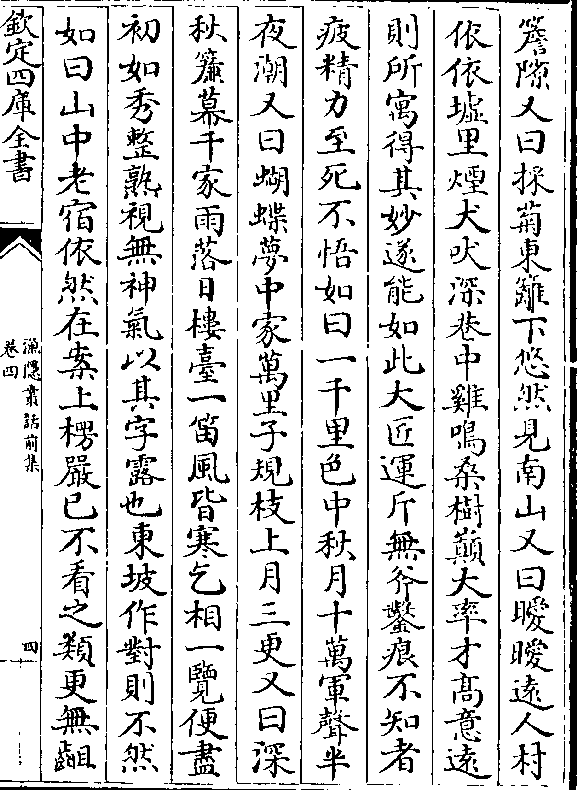 簷隙又曰採菊東籬下悠然見南山又曰曖曖逺人村
依依墟里煙犬吠深巷中雞鳴桑樹巔大率才髙意逺
則所寓得其妙遂能如此大匠運斤無斧鑿痕不知者
疲精力至死不悟如曰一千里色中秋月十萬軍聲半
夜潮又曰蝴蝶夢中家萬里子規枝上月三更又曰深
秋簾幕千家雨落日樓臺一笛風皆寒乞相一覽便盡
初如秀整熟視無神氣以其字露也東坡作對則不然
如曰山中老宿依然在案上楞嚴已不看之類更無齟
欽定四庫全書
漁隠叢話前集
卷四
四